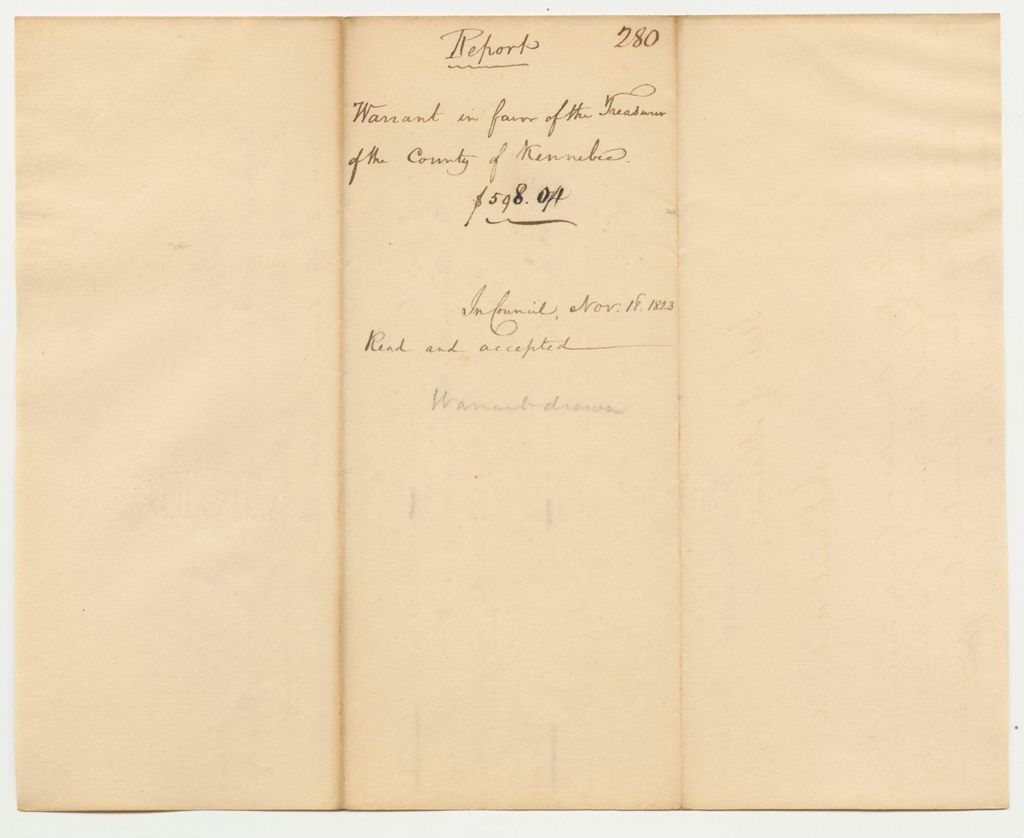 Report 280
Warrant in favor of the Treasurer
of the County of Kennebec.
$598.04
In Council, Nov. 18. 1823
Read and accepted
Warrant drawn